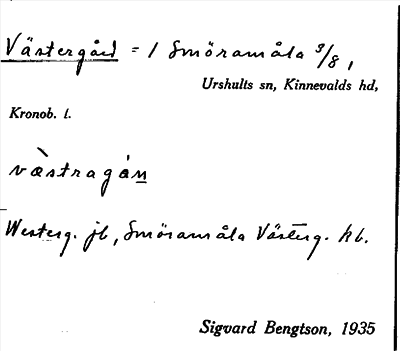 Västergård = 1 Smöramåla 3/8,
Urshults sn, Kinnevalds hd,
Kronob. l.
væ̀stragán
Westerg. jb, Smöramåla Västerg. kb.
Sigvard Bengtson, 1935